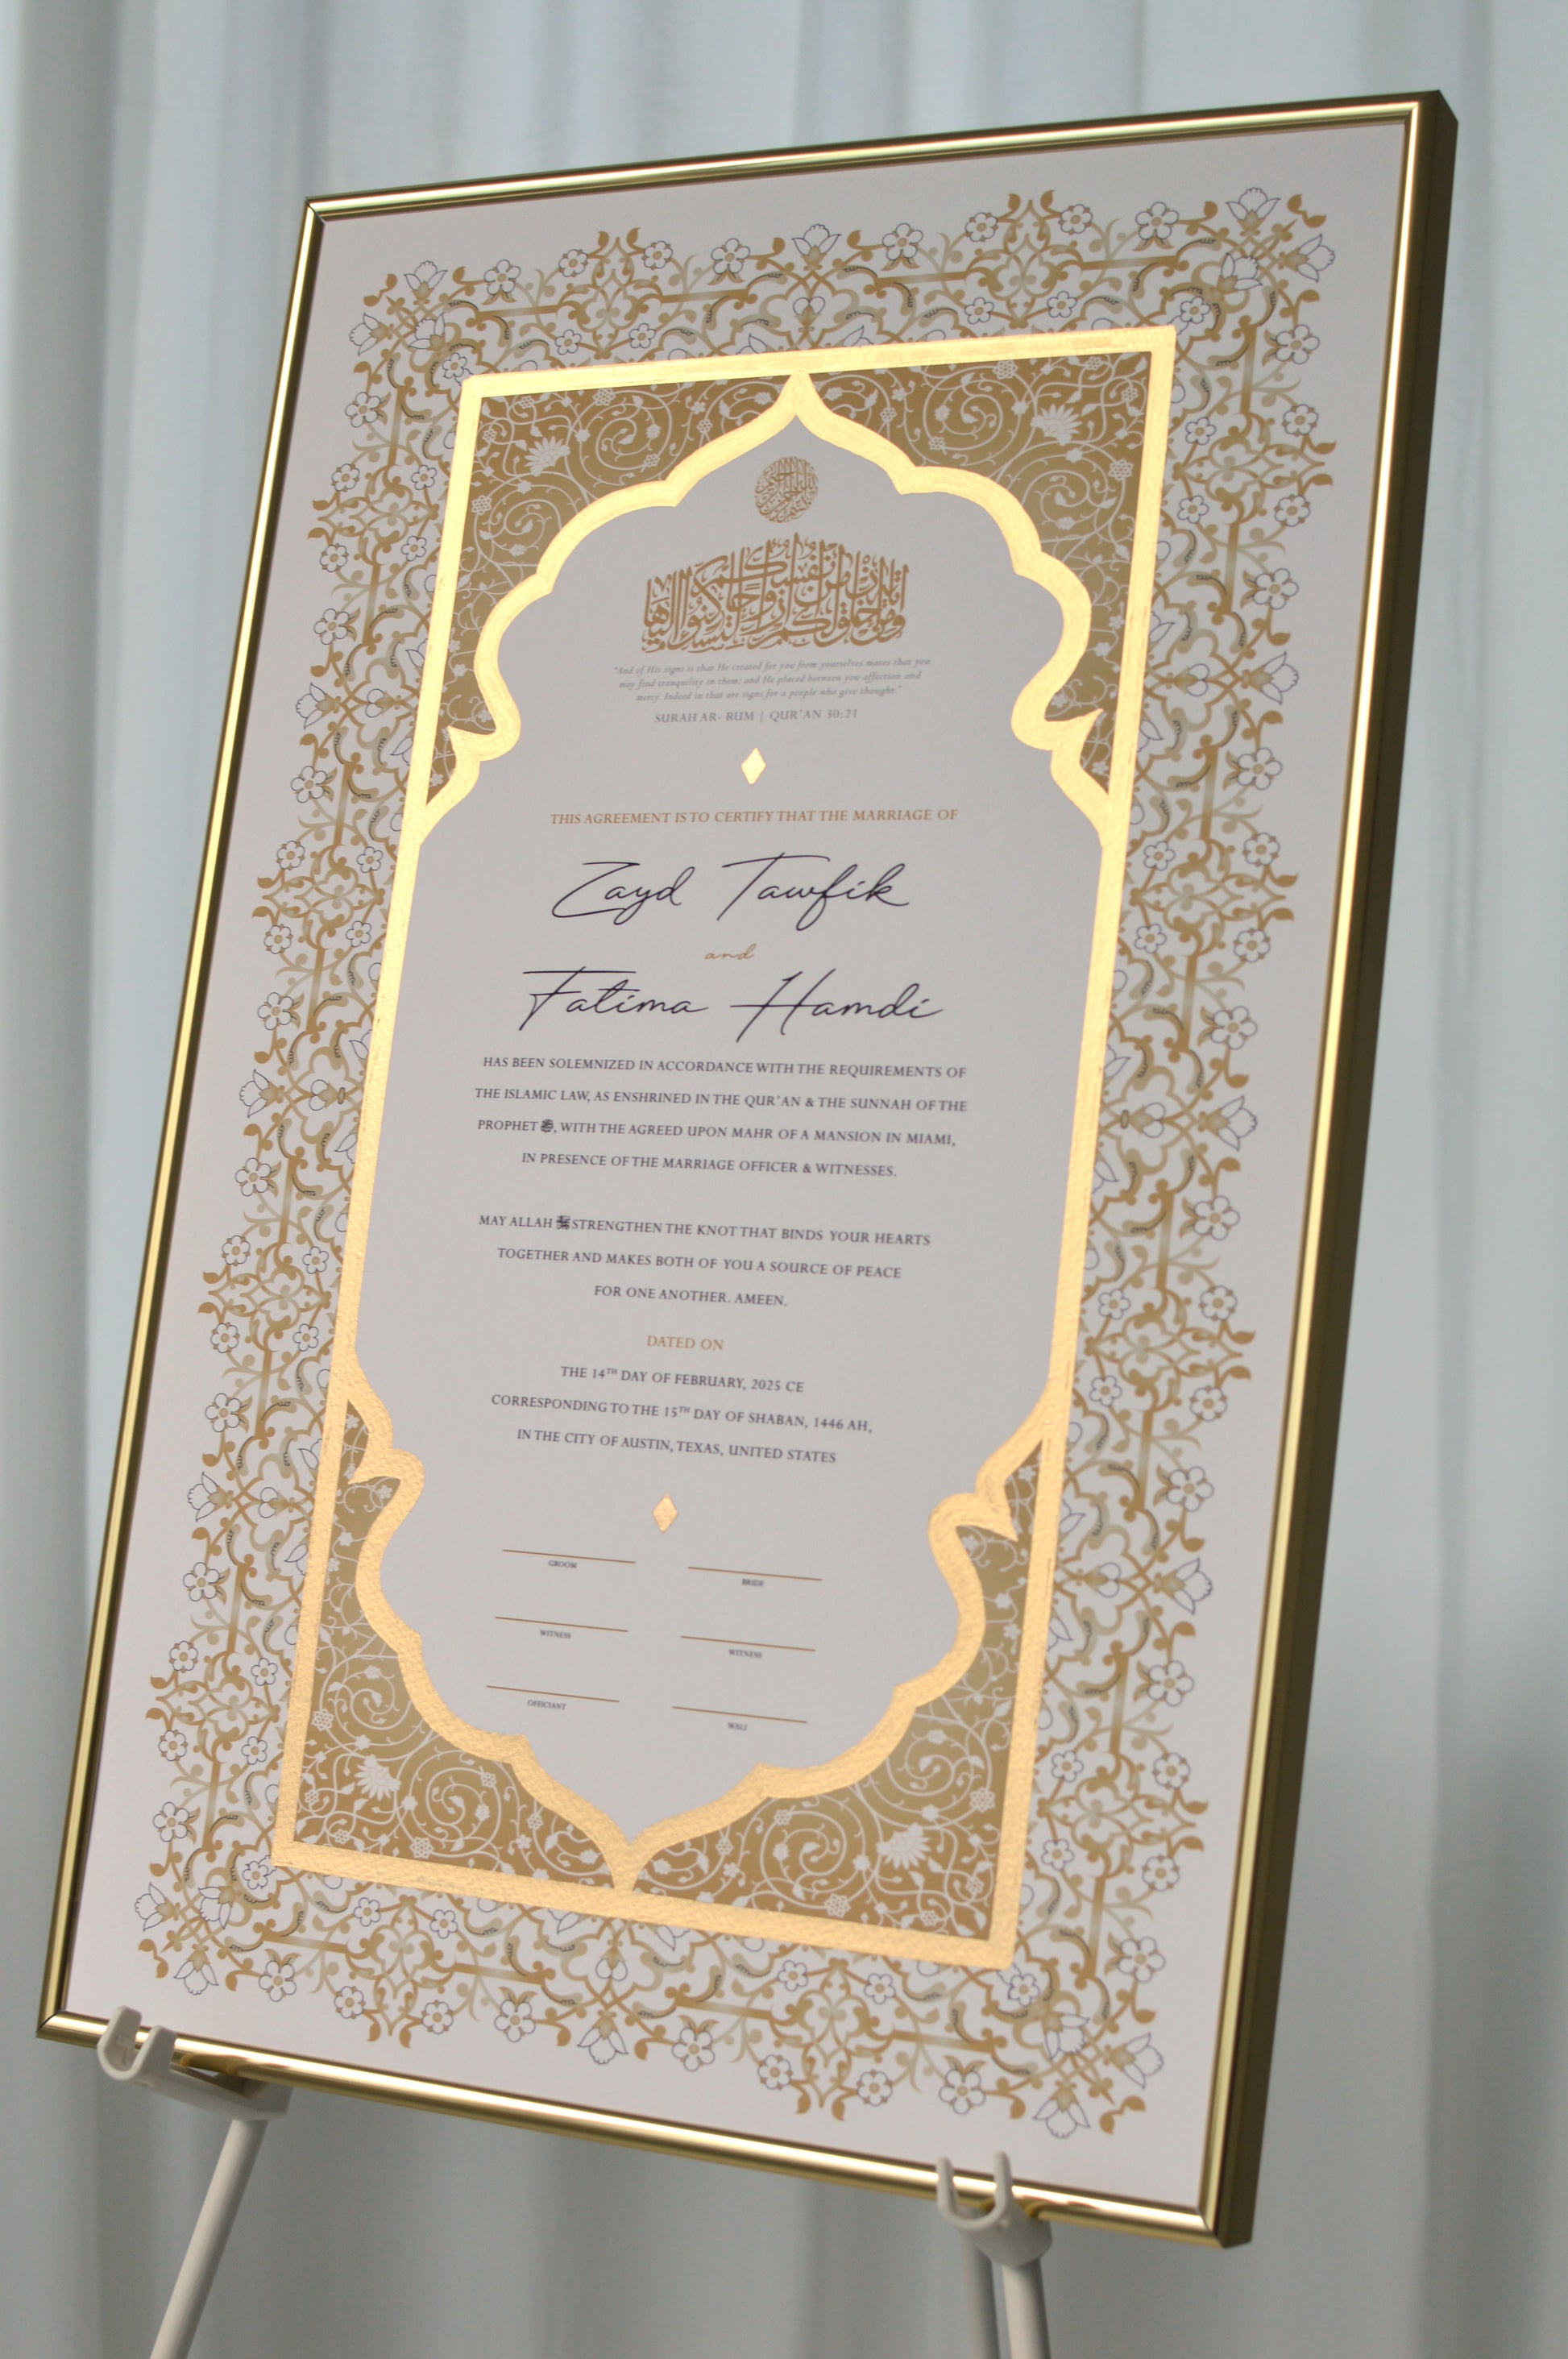 بسم الله الرحمن الرحيم
ومن آياته أن خلق لكم من أنفسكم أزواجا لتسكنوا إليها
"And of His signs is that He created for you from yourselves mates that you
may find tranquility in them; and He placed between you affection and
mercy. Indeed in that are signs for a people who give thought."
SURAH AR- RUM | QUR'AN 30:21
THIS AGREEMENT IS TO CERTIFY THAT THE MARRIAGE OF
Zayd Tawfik
and
Fatima Hamdi
HAS BEEN SOLEMNIZED IN ACCORDANCE WITH THE REQUIREMENTS OF
THE ISLAMIC LAW, AS ENSHRINED IN THE QUR'AN & THE SUNNAH OF THE
PROPHET ﷺ, WITH THE AGREED UPON MAHR OF A MANSION IN MIAMI,
IN PRESENCE OF THE MARRIAGE OFFICER & WITNESSES.
MAY ALLAH STRENGTHEN THE KNOT THAT BINDS YOUR HEARTS
TOGETHER AND MAKES BOTH OF YOU A SOURCE OF PEACE
FOR ONE ANOTHER. AMEEN.
DATED ON
THE 14TH DAY OF FEBRUARY, 2025 CE
CORRESPONDING TO THE 15TH DAY OF SHABAN, 1446 AH,
IN THE CITY OF AUSTIN, TEXAS, UNITED STATES
GROOM
BRIDE
WITNESS
WITNESS
OFFICIANT
WALI